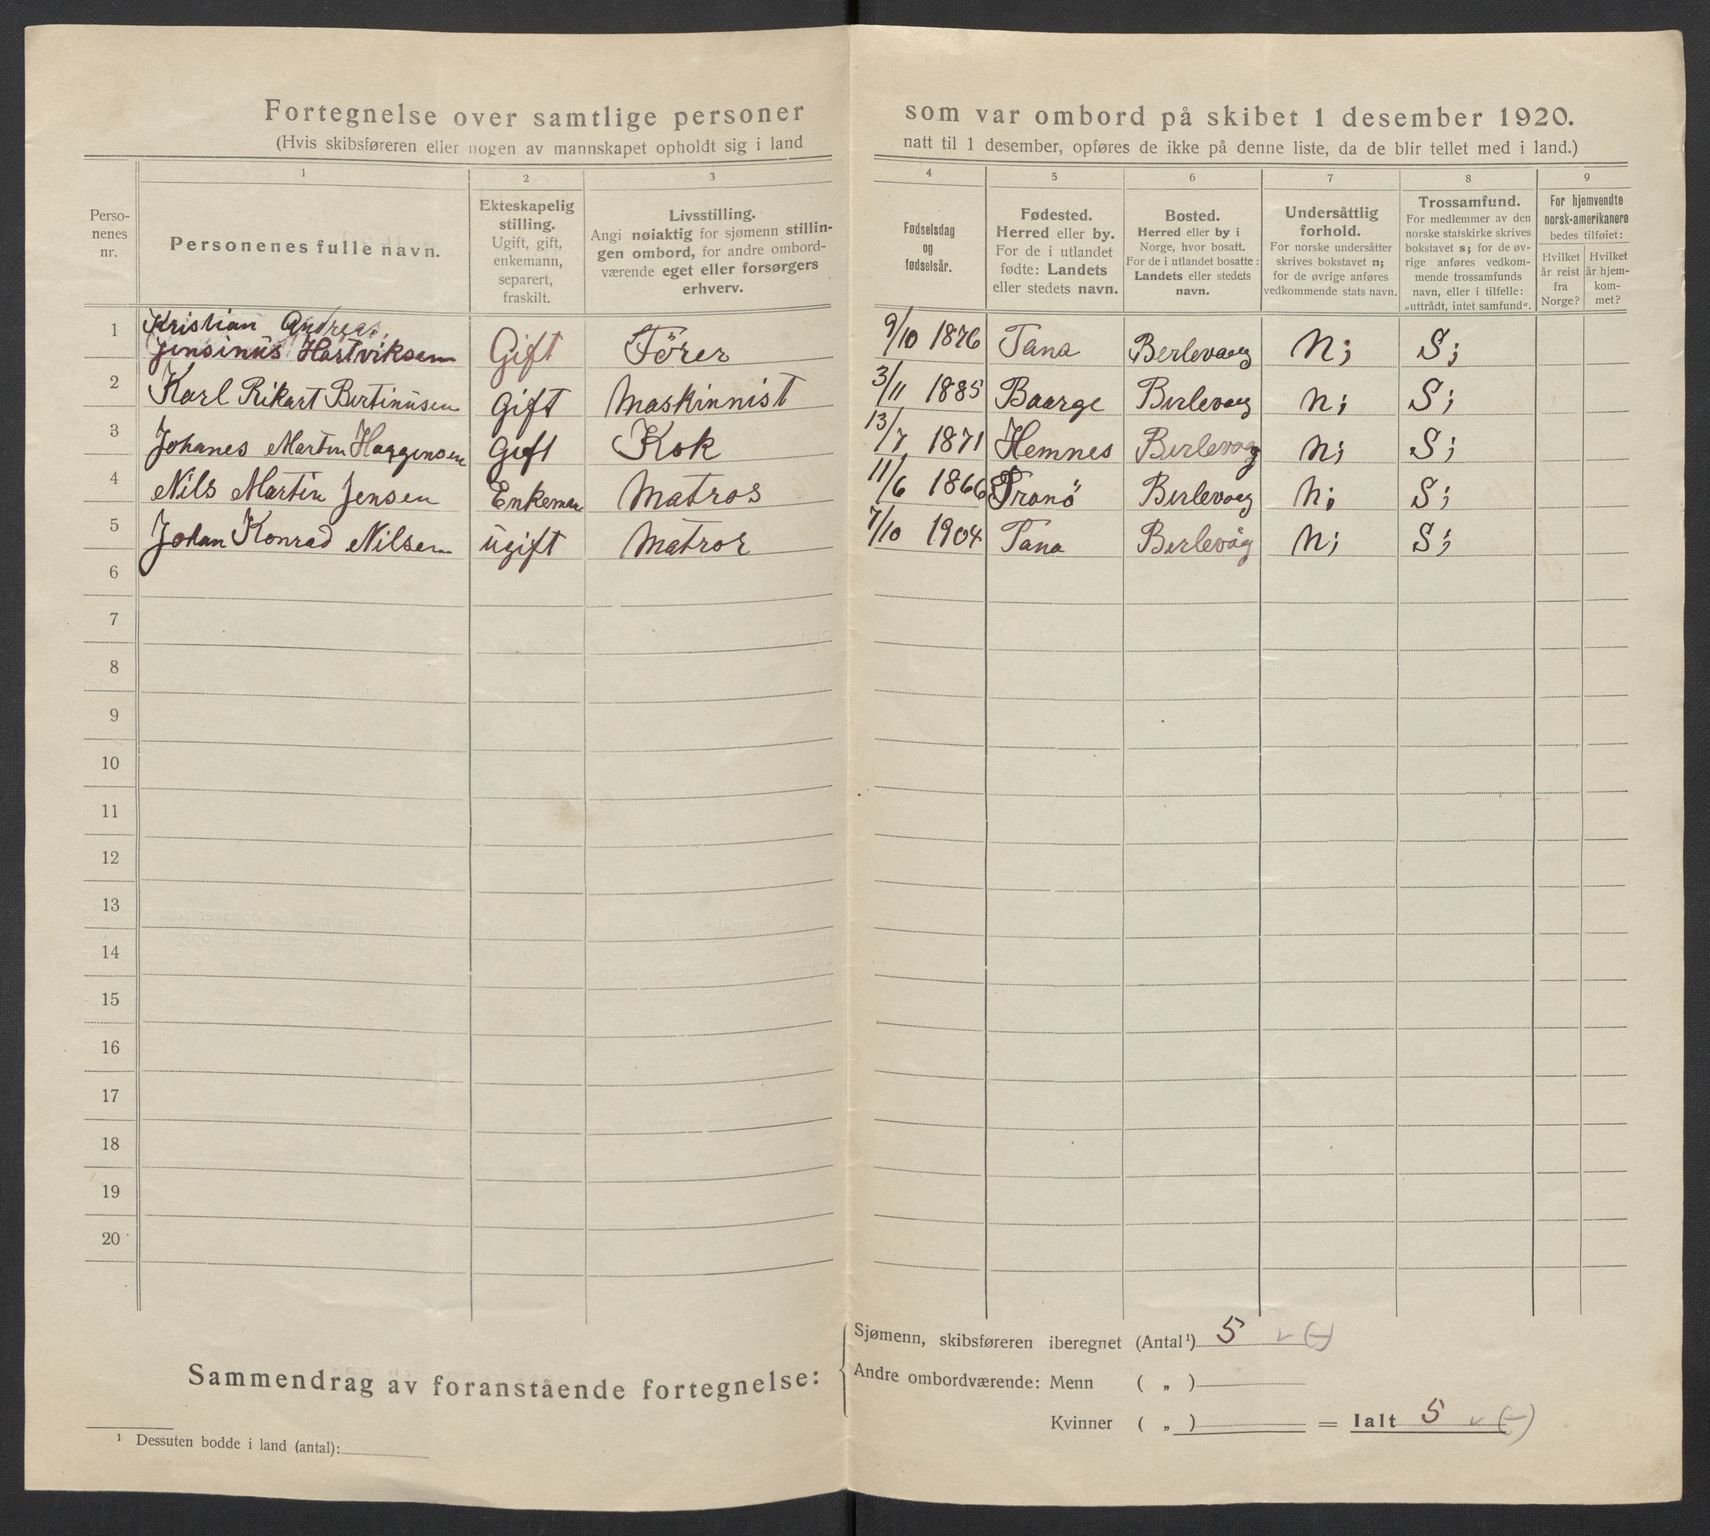 Fortegnelse over samtlige personer som var ombord på skibet 1 desember 1920.
(Hvis skibsføreren eller nogen av mannskapet opholdt sig i land natt til 1 desember, opføres de ikke på denne liste, da de blir tellet med i land.)
Personenes nr.
1
Personenes fulle navn.
2
Ekteskapelig stilling.
Ugift, gift, enkemann, separert, fraskilt.
3
Livsstilling.
Angi nøiaktig for sjømenn stillingen ombord, for andre ombordværende eget eller forsørgers erhverv.
4
Fødselsdag og fødselsår.
5
Fødested.
Herred eller by.
For de i utlandet fødte: Landets eller stedets navn.
6
Bosted.
Herred eller by i Norge, hvor bosatt.
For de i utlandet bosatte: Landets eller stedets navn.
7
Undersåttlig forhold.
For norske undersåtter skrives bokstavet n; for de øvrige anføres vedkommende stats navn.
8
Trossamfund.
For medlemmer av den norske statskirke skrives bokstavet s; for de øvrige anføres vedkommende trossamfunds navn, eller i tilfelle: „uttrådt, intet samfund“.
9
For hjemvendte norsk-amerikanere bedes tilføiet:
Hvilket år reist fra Norge?
Hvilket år hjemkommet?
1 Kristian Andreas
Jensinus Hartviksen Gift Förer 9/10 1876 Tana Berlevaag N; S;
2 Karl Rikart Bertinusen Gift Maskinnist 3/11 1885 Baarge Berlevaag N; S;
3 Johanes Martin Haggensen Gift Kok 13/7 1871 Hemnes Berlevog N; S;
4 Nils Martin Jensen Enkeman Matros 11/6 1866 Tranö Berlevaag N; S;
5 Johan Konrad Nilsen ugift Matros 7/10 1904 Tana Berlevåg N; S;
6
7
8
9
10
11
12
13
14
15
16
17
18
19
20
Sammendrag av foranstående fortegnelse:
Sjømenn, skibsføreren iberegnet (Antal¹) 5 v (-)
Andre ombordværende: Menn ( „ )
Kvinner ( „ ) = Ialt 5 v (-)
¹ Dessuten bodde i land (antal):